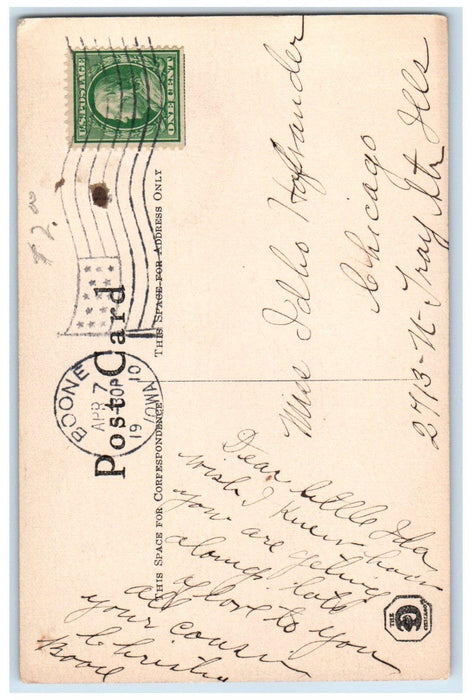 U.S. POSTAGE
ONE CENT
BOONE
APR 7
30P
19 10
IOWA
$2.00
Post Card
THIS SPACE FOR CORRESPONDENCE
THIS SPACE FOR ADDRESS ONLY
Dear little Ida
wish I knew how
you are getting
along. lots
of love to you
all
your cousin
Christie
Boone
Miss Idho Hofsander
Chicago
2713-N-Troy Str Ills
THE
CHICAGO